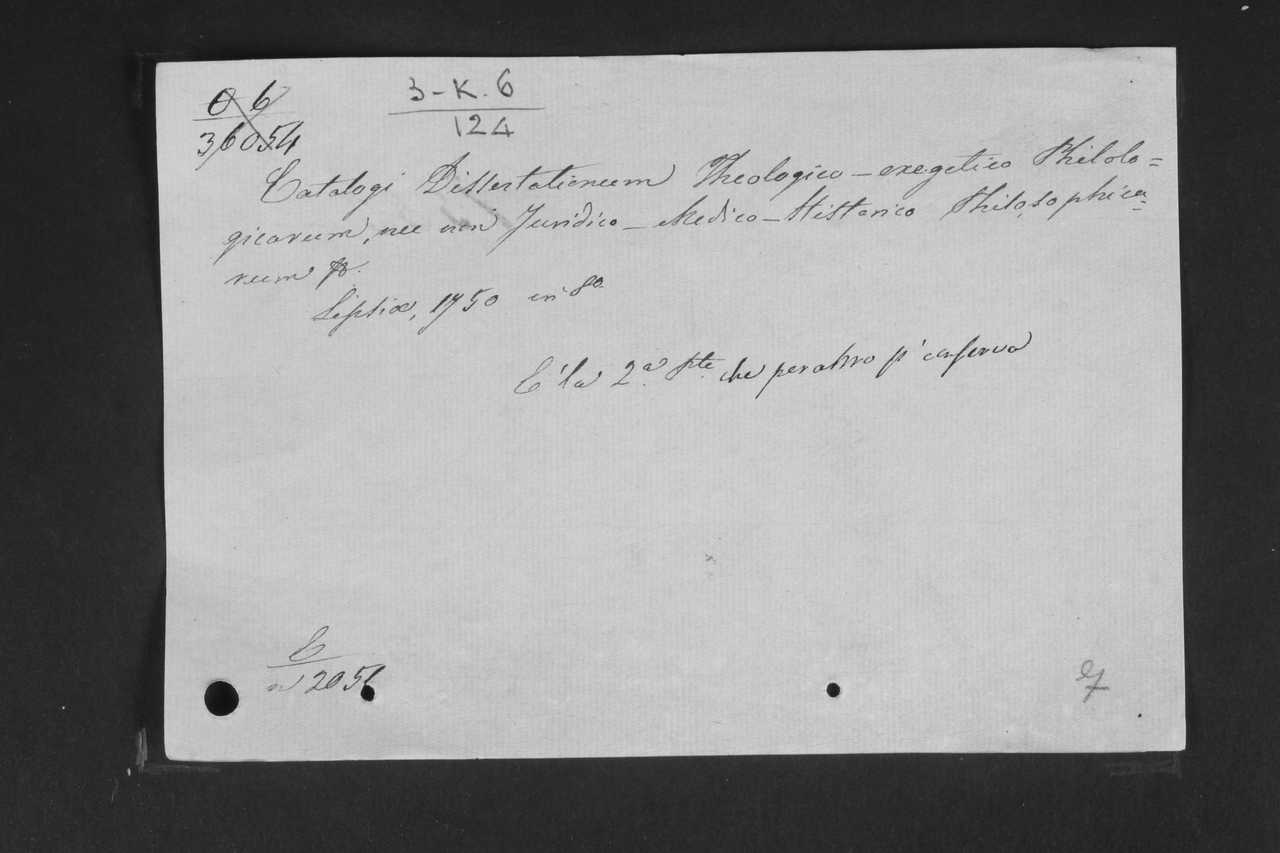 O 6
36054
3-K. 6
124
Catalogi Dissertationum Theologico-exegetico Philolo=
gicarum, nec non Juridico-Medico-Historico Philosophica=
rum &.
Lipsiæ, 1750 in 8o
E' la 2.a Pte che peraltro si conserva
E
n 205